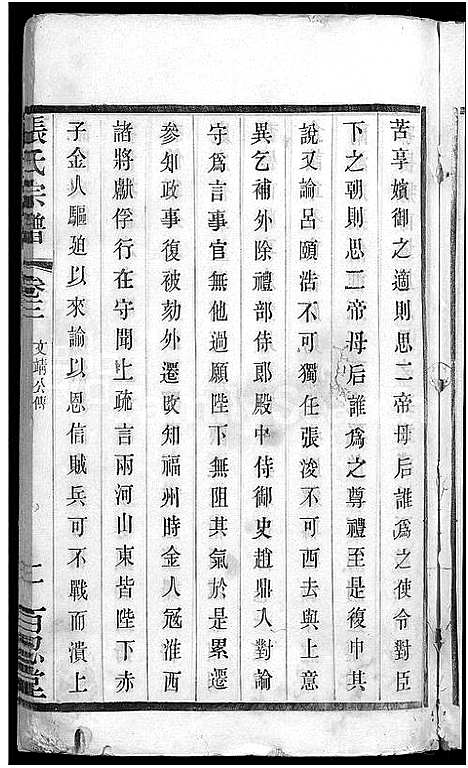 苦享嬪御之適則思二帝母后誰爲之使令對臣
下之朝則思二帝母后誰爲之尊禮至是復申其
說又論呂頤浩不可獨任張浚不可西去與上意
異乞補外除禮部侍郎殿中侍御史趙鼎入對論
守爲言事官無他過願陛下無阻其氣於是累遷
參知政事復被劾外遷改知福州時金人寇淮西
諸將獻俘行在守聞上疏言兩河山東皆陛下赤
子金人驅廹以來諭以恩信賊兵可不戰而潰上
張氏宗譜 卷三 文靖公傳 二 百忍堂